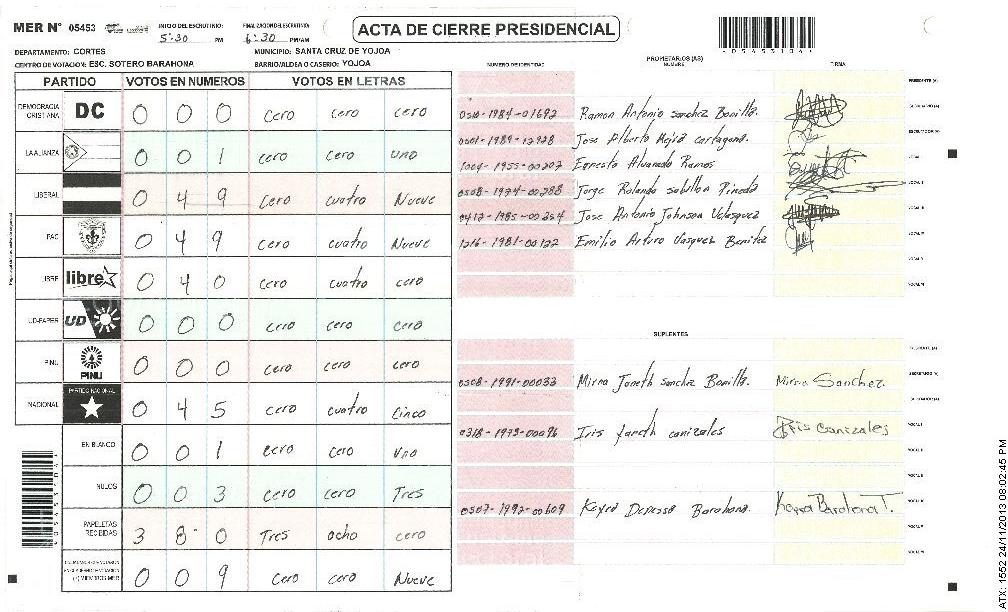 MER Nº 05453
INICIO DEL ESCRUTINIO: 5:30 PM
FINALIZACION DEL ESCRUTINIO: 6:30 PM/AM
ACTA DE CIERRE PRESIDENCIAL
DEPARTAMENTO: CORTES
MUNICIPIO: SANTA CRUZ DE YOJOA
CENTRO DE VOTACION: ESC. SOTERO BARAHONA
BARRIO/ALDEA O CASERIO: YOJOA
PARTIDO VOTOS EN NUMEROS VOTOS EN LETRAS
DEMOCRACIA CRISTIANA DC 0 0 0 cero cero cero
LA ALIANZA 0 0 1 cero cero uno
LIBERAL 0 4 9 cero cuatro Nueve
PAC 0 4 9 cero cuatro Nueve
LIBRE libre 0 4 0 cero cuatro cero
UD-FAPER UD 0 0 0 cero cero cero
PINU PINU 0 0 0 cero cero cero
NACIONAL PARTIDO NACIONAL 0 4 5 cero cuatro cinco
EN BLANCO 0 0 1 cero cero uno
NULOS 0 0 3 cero cero Tres
PAPELETAS RECIBIDAS 3 8 0 Tres ocho cero
0 0 9 cero cero Nueve
NUMERO DE IDENTIDAD
PROPIETARIOS (AS)
NOMBRE
FIRMA
Ramon Antonio sanchez Bonilla.
0501-1989-12928 Jose Alberto Mejia cartagena.
1004-1955-00207 Ernesto Alvarado Ramos
0508-1974-00288 Jorge Rolando sabillon Pineda
0412-1985-00254 Jose Antonio Johnson Velasquez
1216-1981-00122 Emilio Arturo Vasquez Benitez
SUPLENTES
0508-1991-00033 Mirna Janeth sanchz Bonilla. Mirna Sanchez.
0318-1973-00096 Iris Janeth canizales Iris Canizales
0507-1992-00609 Barahona.
ATX: 1552 24/11/2013 08:02:45 PM